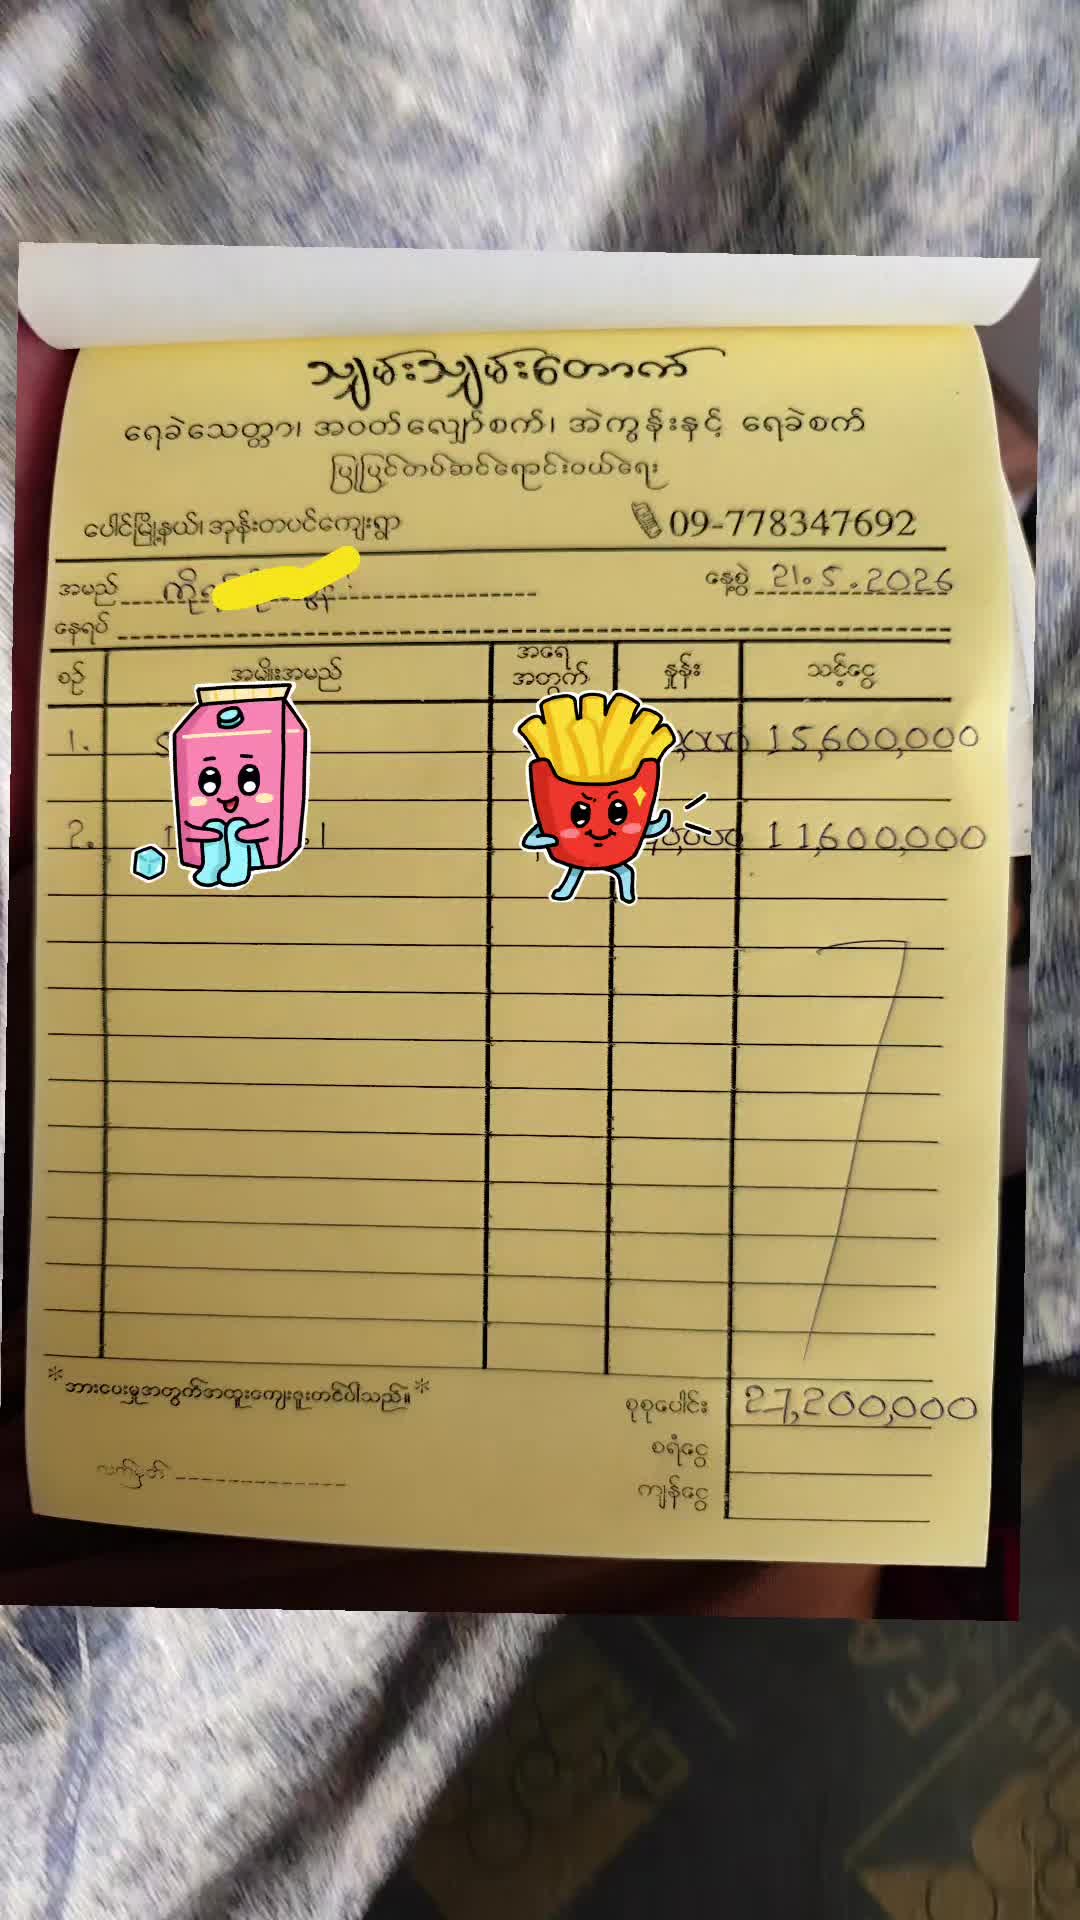 သျှမ်းသျှမ်းတောက်
ရေခဲသေတ္တာ၊ အဝတ်လျှော်စက်၊ အဲကွန်းနှင့် ရေခဲစက်
ပြုပြင်တပ်ဆင်ရောင်းဝယ်ရေး
ပေါင်မြို့နယ်၊ အုန်းတပင်ကျေးရွာ 09-778347692
အမည် ကို နေ့စွဲ 21.5.2026
နေရပ်
စဉ် အမျိုးအမည် အရေအတွက် နှုန်း သင့်ငွေ
1. 15,600,000
2. 11,600,000
*အားပေးမှုအတွက်အထူးကျေးဇူးတင်ပါသည်။*
စုစုပေါင်း 27,200,000
စရံငွေ
လက်မှတ်
ကျန်ငွေ